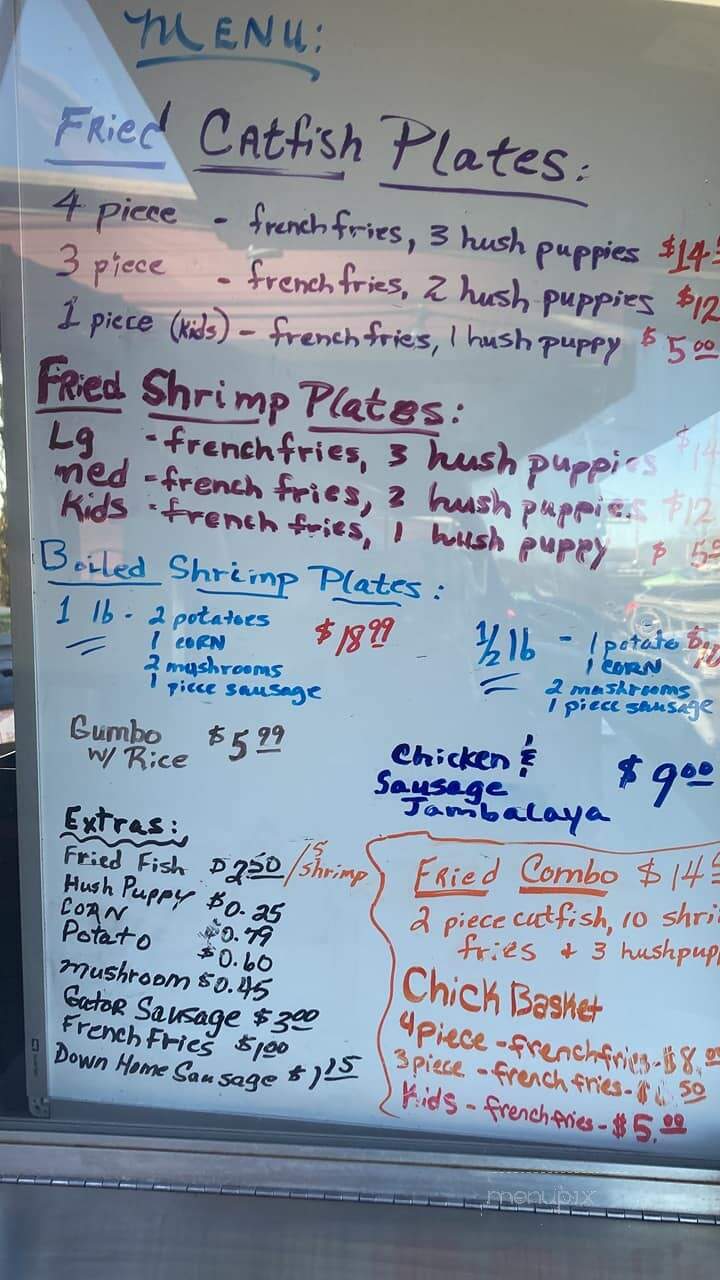 MENU:
Fried Catfish Plates:
4 piece - french fries, 3 hush puppies $14
3 piece - french fries, 2 hush puppies $12
1 piece (kids) - french fries, 1 hush puppy $5.00
Fried Shrimp Plates:
Lg - french fries, 3 hush puppies $14
med - french fries, 2 hush puppies $12
Kids - french fries, 1 hush puppy $5
Boiled Shrimp Plates:
1 lb - 2 potatoes $18.99
1 CORN
2 mushrooms
1 piece sausage
1/2 lb - 1 potato
1 CORN
2 mushrooms
1 piece sausage
Gumbo $5.99
w/ Rice
Chicken &
Sausage $9.00
Jambalaya
Extras:
Fried Fish $2.50 / 5 shrimp
Hush Puppy $0.25
CORN $0.79
Potato $0.60
mushroom $0.45
Gator Sausage $3.00
French Fries $1.00
Down Home Sausage $1.15
Fried Combo $14
2 piece catfish, 10 shri
fries & 3 hushpup
Chick Basket
4 piece - french fries - $8.
3 piece - french fries - $ .50
Kids - french fries - $5.00
menupix